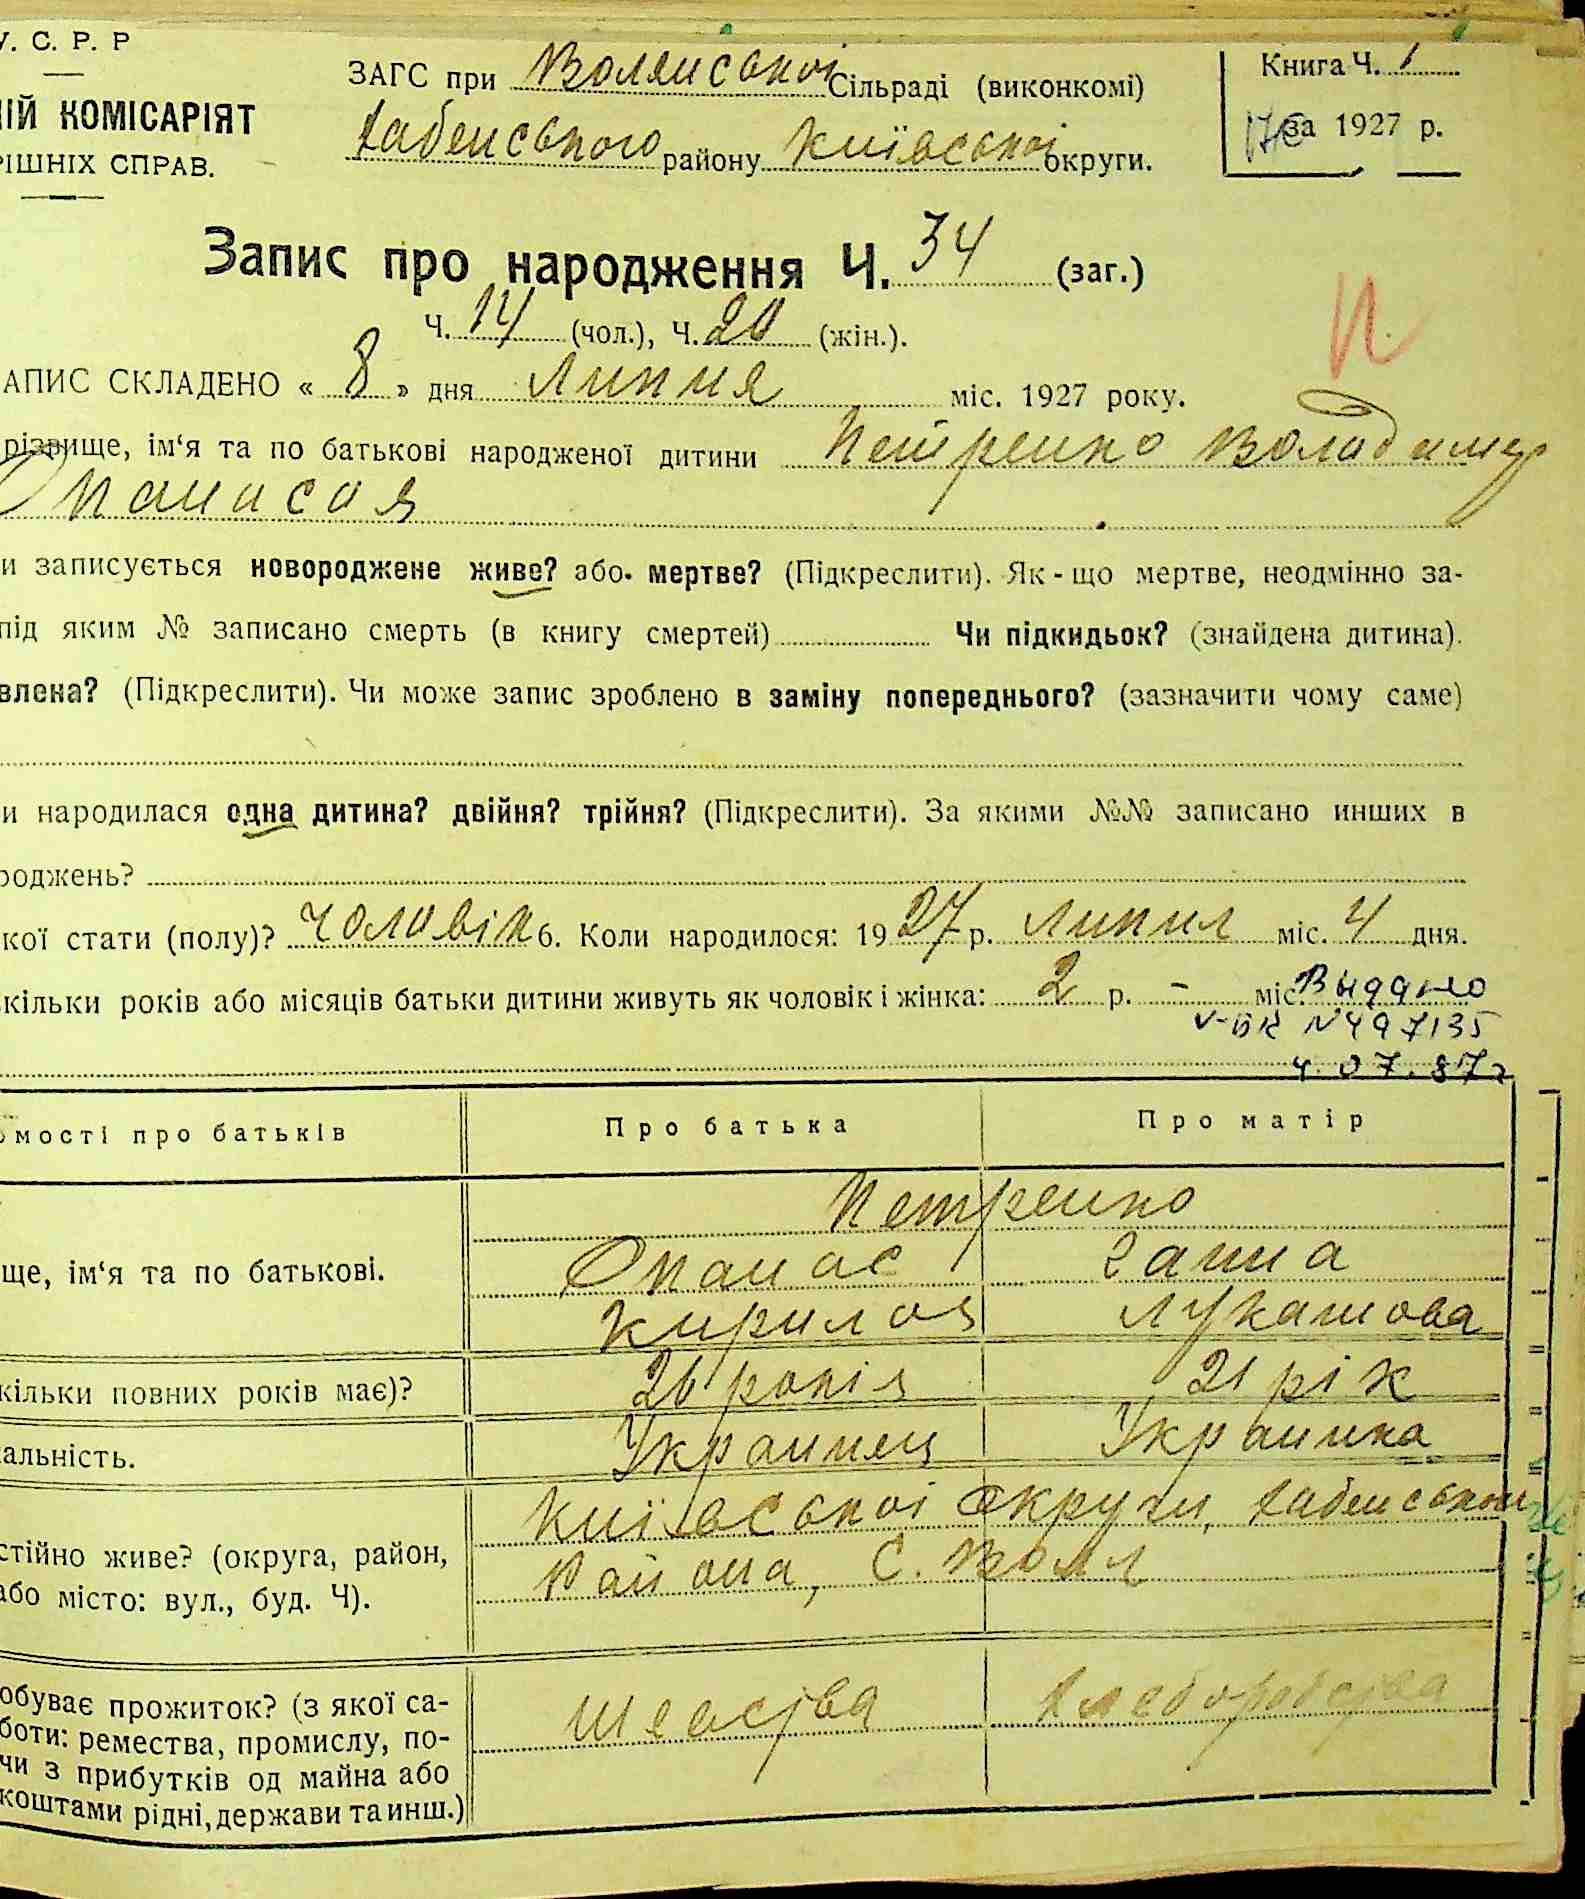 У. С. Р. Р
ІЙ КОМІСАРІЯТ
РІШНІХ СПРАВ.
ЗАГС при Волянської Сільраді (виконкомі)
Хабенського району Київської округи.
Книга Ч. 1
за 1927 р.
Запис про народження Ч. 34 (заг.)
Ч. 14 (чол.), Ч. 20 (жін.).
АПИС СКЛАДЕНО « 8 » дня Липня міс. 1927 року.
різвище, ім‘я та по батькові народженої дитини Петренко Володимер
Опанасов
и записується новороджене живе? або мертве? (Підкреслити). Як-що мертве, неодмінно за-
під яким № записано смерть (в книгу смертей) Чи підкидьок? (знайдена дитина).
влена? (Підкреслити). Чи може запис зроблено в заміну попереднього? (зазначити чому саме)
и народилася одна дитина? двійня? трійня? (Підкреслити). За якими №№ записано инших в
роджень?
кої стати (полу)? чоловік 6. Коли народилося: 1927 р. Липня міс. 4 дня.
кільки років або місяців батьки дитини живуть як чоловік і жінка: 2 р. - міс.
Выдано
V-БК N497135
4.07.87г
омості про батьків Про батька Про матір
Петренко
ще, ім‘я та по батькові. Опанас Ганна
Кирилов Лукашова
кільки повних років має)? 26 років 21 рік
альність. Украинец Украинка
Київської округи, Хабенського
стійно живе? (округа, район, района, с. Воля
або місто: вул., буд. Ч).
обуває прожиток? (з якої са- шевства хлеборобства
боти: ремества, промислу, по-
чи з прибутків од майна або
коштами рідні, держави та инш.)